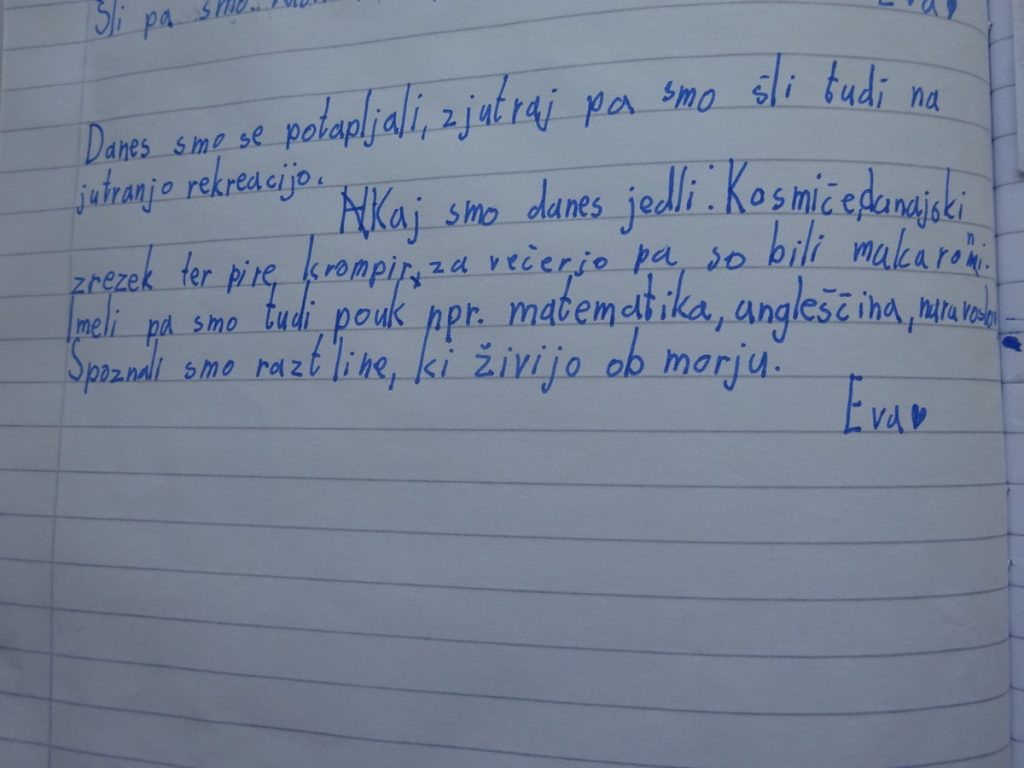 Šli pa smo
Eva♥
Danes smo se potapljali, zjutraj pa smo šli tudi na
jutranjo rekreacijo.
Kaj smo danes jedli: Kosmiče, dunajski
zrezek ter pire krompir, za večerjo pa so bili makaroni.
Imeli pa smo tudi pouk npr. matematika, angleščina,
Spoznali smo raztline, ki živijo ob morju.
Eva♥